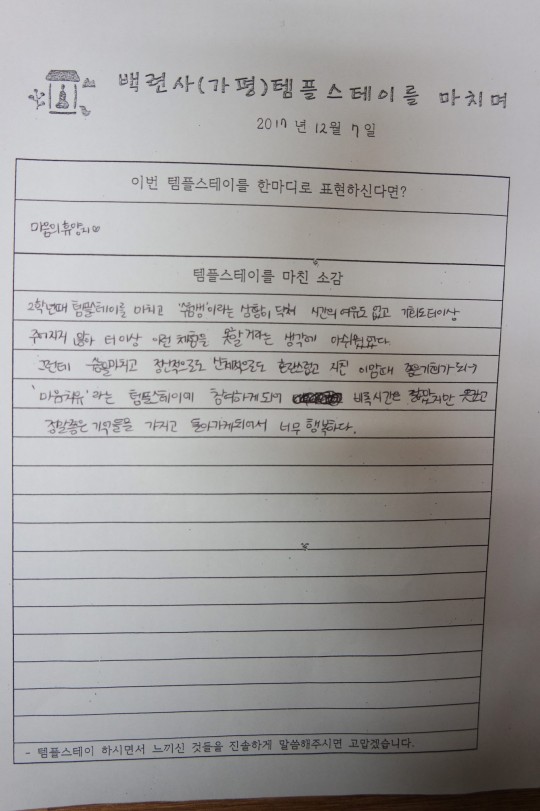 백련사(가평)템플스테이를 마치며
2017년 12월 7일
이번 템플스테이를 한마디로 표현하신다면?
마음의휴양지∞
템플스테이를 마친 소감
2학년때 템플스테이를 마치고 '수험생'이라는 상황이 닥쳐 시간의 여유도 없고 기회도더이상
주어지지 않아 더이상 이런 체험을 못할거라는 생각에 아쉬웠었다.
그런데 수능마치고 정신적으로도 신체적으로도 혼란스럽고 지친 이맘때 좋은기회가 되어
'마음치유'라는 템플스테이에 참여하게되어 비록시간은 짧았지만 뜻깊고
정말좋은 기억들을 가지고 돌아가게되어서 너무 행복하다.
- 템플스테이 하시면서 느끼신 것들을 진솔하게 말씀해주시면 고맙겠습니다.